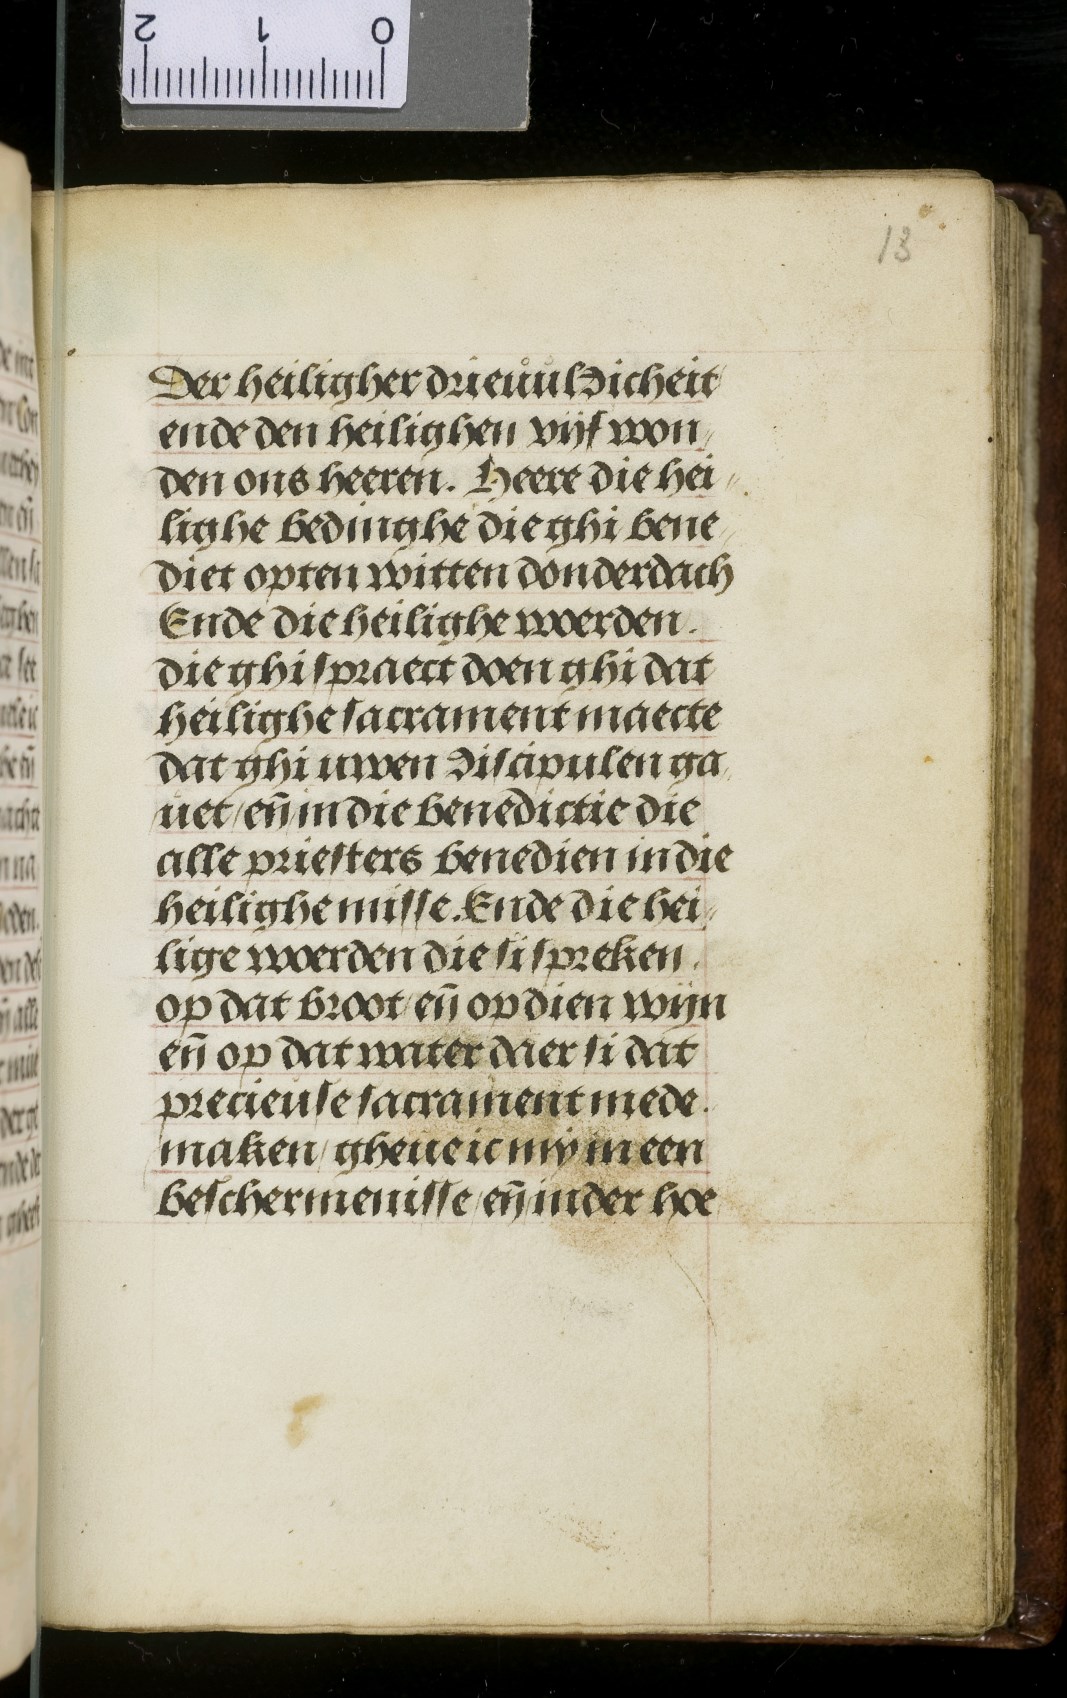 2 1 0
13
Der heiligher drieuůuldicheit
ende den heilighen vijf won,
den ons heeren. Heere die hei,,
lighe bedinghe die ghi bene,
diet opten witten donderdach
Ende die heilighe woerden.
die ghi spraect doen ghi dat
heilighe sacrament maecte
dat ghi uwen discipulen ga,
uet / en̄ in die benedictie die
alle priesters benedien in die
heilighe misse. Ende die hei,
lige woerden die si spreken.
op dat broot / en̄ op dien wijn
en̄ op dat water daer si dat
precieuse sacrament mede.
maken / gheue ic mÿ in een
beschermenisse / en̄ in der hoe